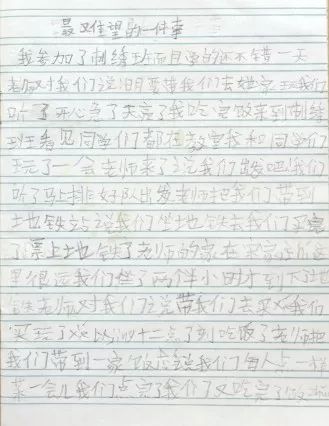 最又佳望的一件事
我参加了刺绣班而且学的还不错一天
老师对我们说明要带我们去她家玩我们
听了开心急了天亮了我吃完饭来到刺绣
班看见同学们都在教室我和同学们
玩了一会老师来了说我们出发吧我们
听了马上排好队出发老师把我们带到
土地铁站说我们坐地铁去我们买完
了票上土地铁了老师的家在
里很远我们坐了两个半小时才到下过地
铁老师对我们说带我们去买 我们
买玩了 以 十二点了到吃饭了老师把
我们带到一家饭店说我们每人点一样
菜一会儿我们点完了我们又吃完了饭